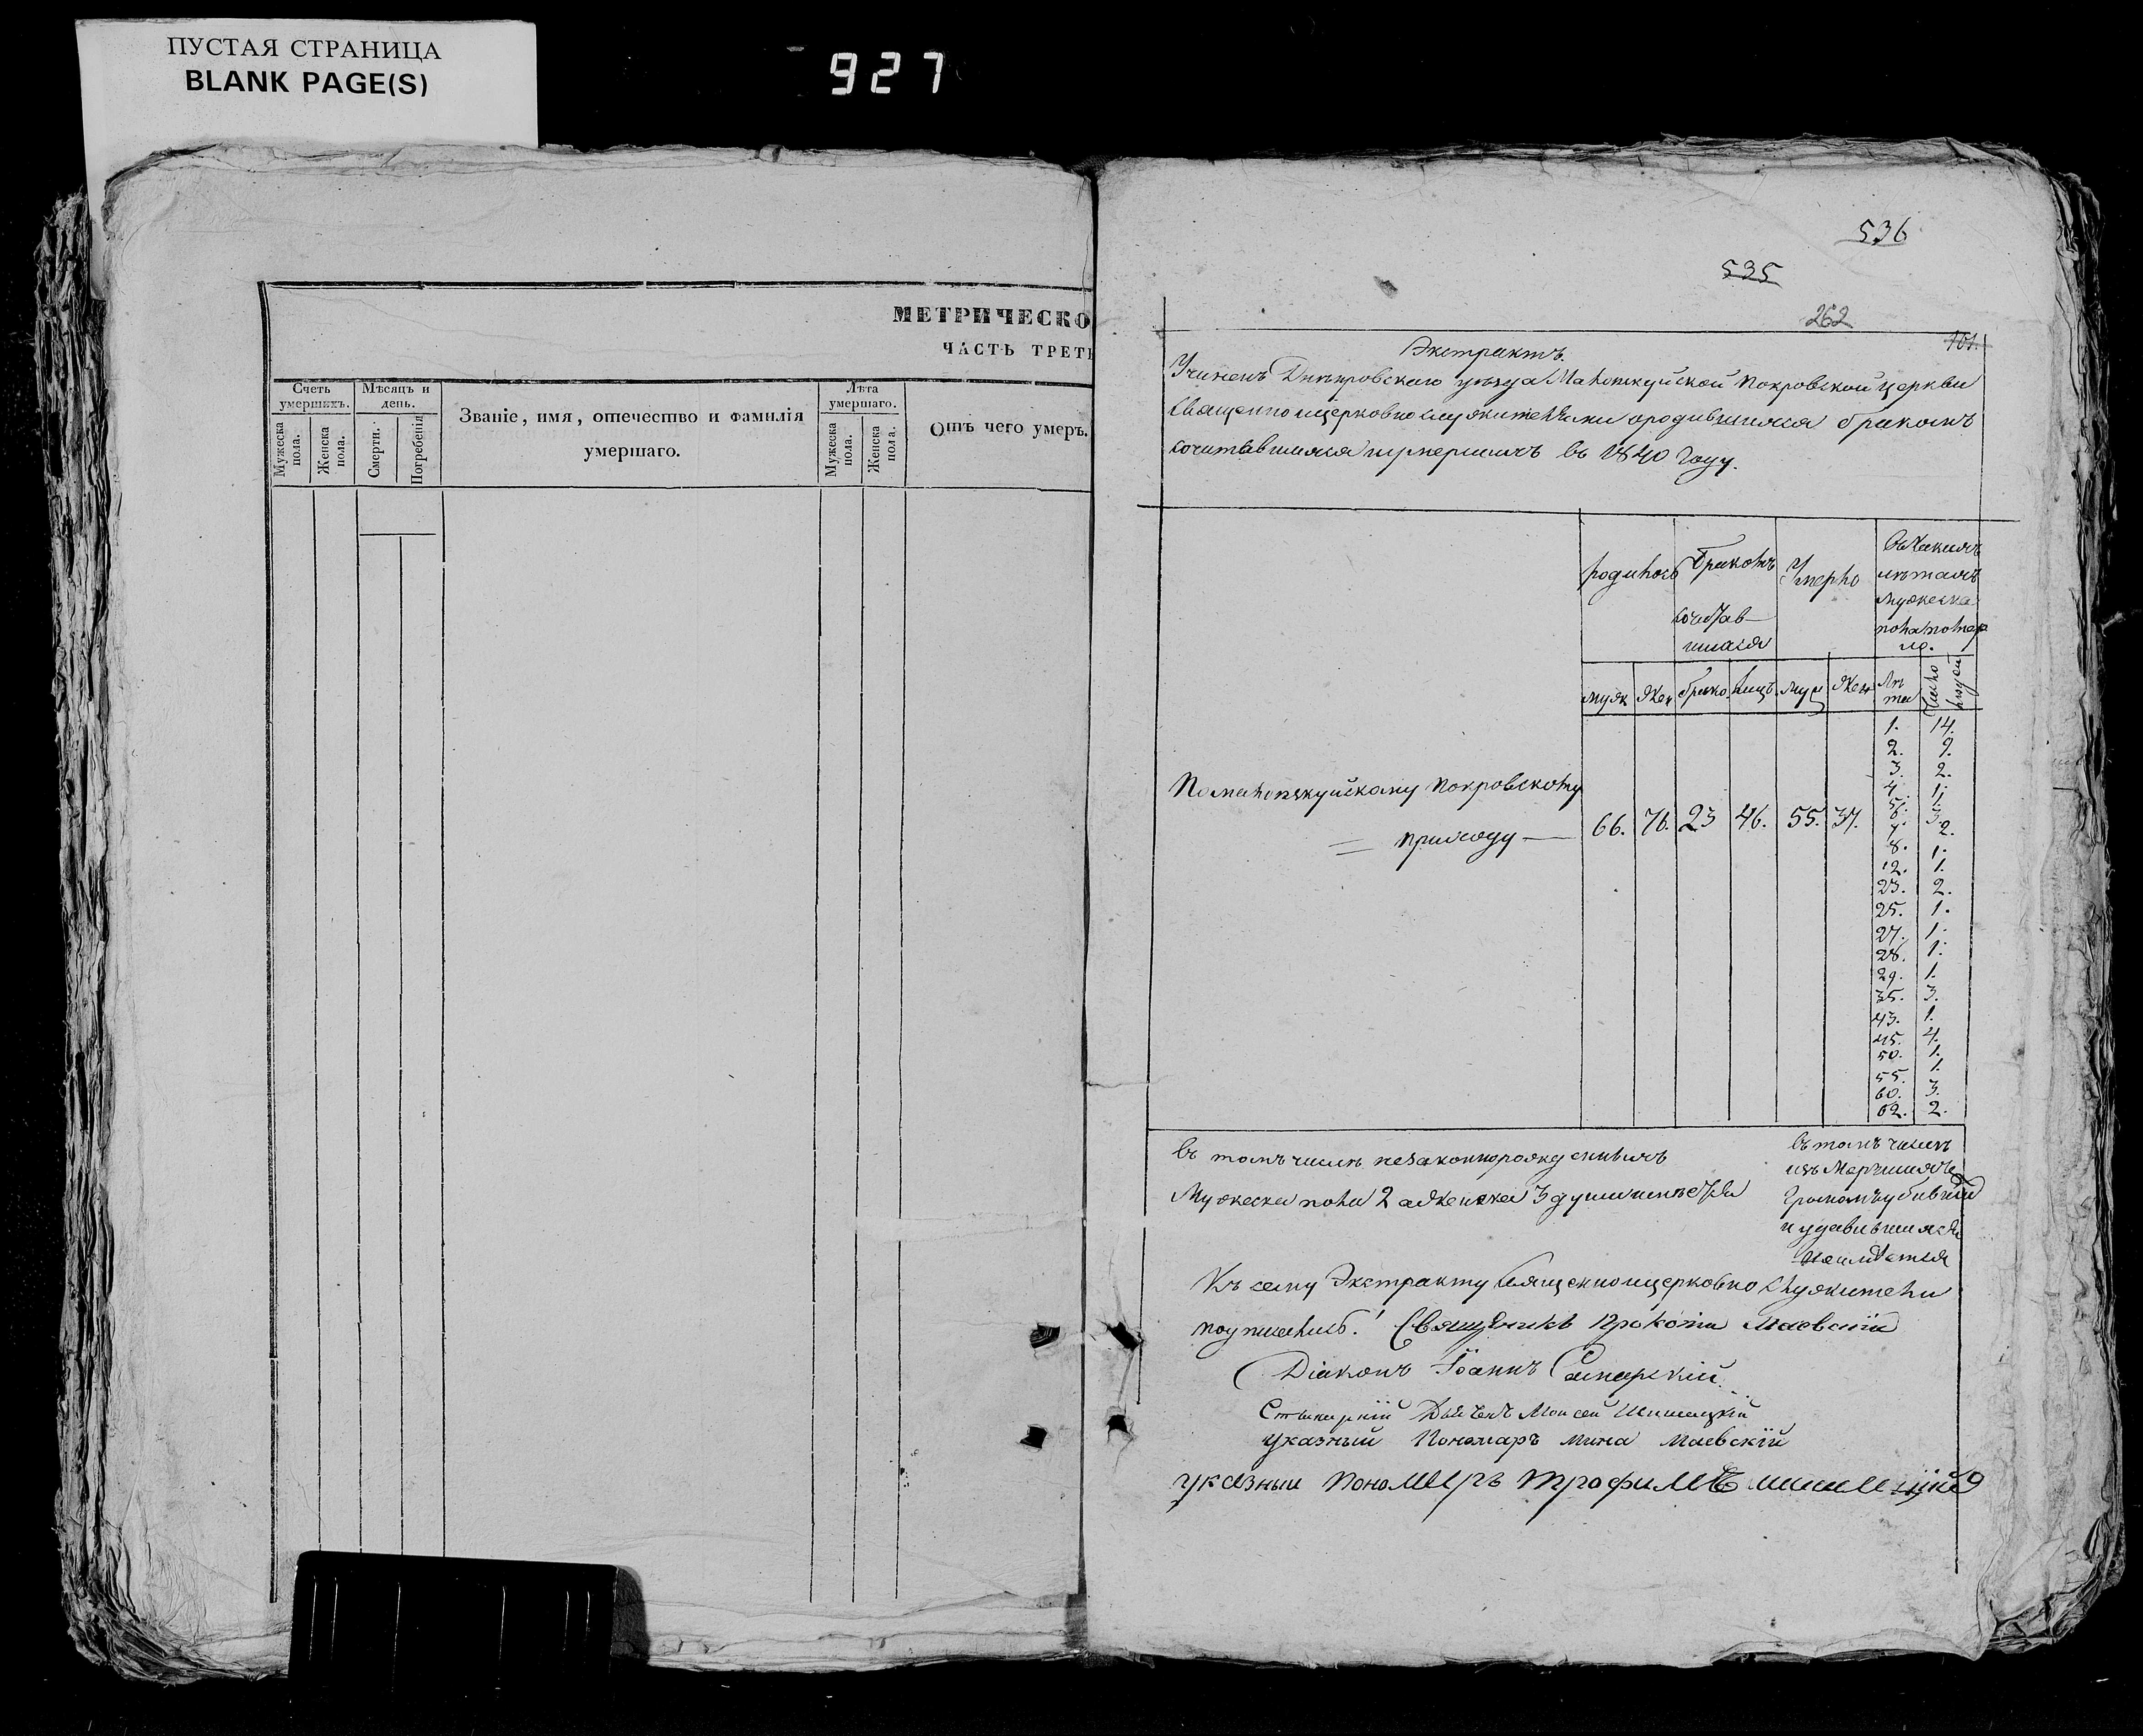 ПУСТАЯ СТРАНИЦА
BLANK PAGE(S)
927
МЕТРИЧЕСКО
ЧАСТЬ ТРЕТЬ
Счетъ умершихъ.
Мужеска пола.
Женска пола.
Мѣсяцъ и день.
Смерти.
Погребенія
Званіе, имя, отечество и фамилія
умершаго.
Лѣта умершаго.
Мужеска пола.
Женска пола.
Отъ чего умеръ.
536
535
262
101.
Экстрактъ.
Учиненъ Днѣпровскаго уѣзда Покровской церкви
Священно и церковно служителями о родившихся бракомъ
сочитавшихся и умершихъ въ 1840 году.
родилось
Бракомъ
сочетав-
шихся
Умерло
лѣтахъ
мужеска
пола
муж
жен
брако.
лицъ.
муж
жен
Лѣ
та
Число
людей
1. 14.
2. 9.
3. 2.
4. 1.
5. 1.
6. 3.
7. 2.
8. 1.
12. 1.
23. 2.
25. 1.
27. 1.
28. 1.
29. 1.
35. 3.
43. 1.
45. 4.
50. 1.
55. 1.
60. 3.
62. 2.
Покровскому
приходу
66. 76. 23 46. 55. 37.
Въ томъ числѣ незаконнорожденныхъ
Мужеска пола 2 а женска 3 души имѣется
Въ томъ числѣ
громомъ убившихся
и удавившихся
неимѣется
Къ сему Экстракту священно и церковно служители
подписались. Священникъ Прокопій Маевскій
Діаконъ Іоаннъ Самарскій
Моисей
указный Пономаръ Мина Маевскій
указный Пономаръ Трофимъ